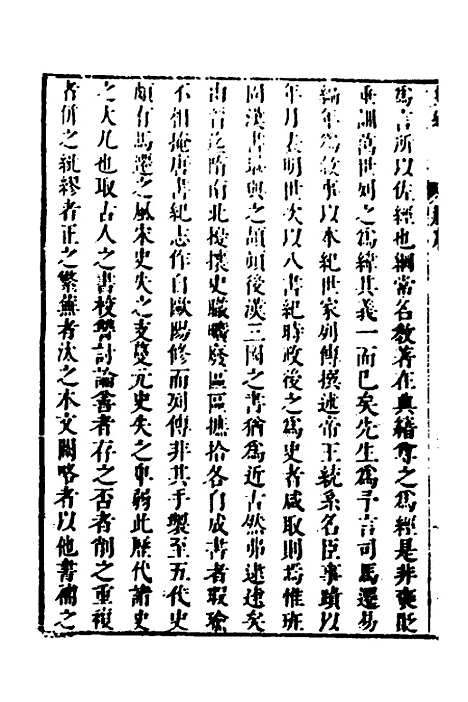 爲言所以佐經也綱常名敎著在典籍尊之爲經是非褒貶
垂訓萬世列之爲緯其義一而已矣先生爲予言司馬遷易
編年爲敘事以本紀世家列傳撰述帝王統系名臣事蹟以
年月表明世次以八書紀時政後之爲史者咸取則焉惟班
固漢書最與之頡頏後漢三國之書猶爲近古然弗逮遠矣
由晉迄隋南北搶攘史職曠廢區區摭拾各自成書者瑕瑜
不相掩唐書紀志作自歐陽修而列傳非其手製至五代史
頗有馬遷之風宋史失之支蔓元史失之卑弱此歷代諸史
之大凡也取古人之書校讐討論善者存之否者削之重複
者併之紕繆者正之繁蕪者汰之本文闕略者以他書補之